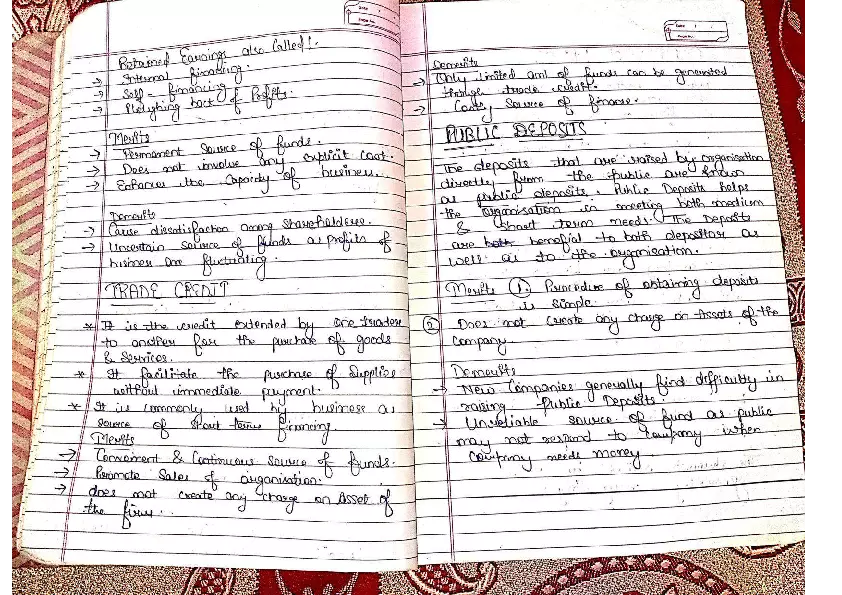 Retained Earnings also Called :
→ Internal financing.
→ Self - financing
→ Ploughing back of Profits.
Merits
→ Permanent Source of funds.
→ Does not involve any explicit cost.
→ Enhances the Capacity of business.
Demerits
→ Cause dissatisfaction among Shareholders.
→ Uncertain source of funds as profits of
business are fluctuating.
TRADE CREDIT
* It is the credit extended by one trader
to another for the purchase of goods
& Services.
* It facilitate the purchase of Supplies
without immediate payment.
* It is commonly used by business as
source of short term financing.
Merits
→ Convenient & Continuous Source of funds.
→ Promote Sales of organisation.
→ does not create any charge on Asset of
the firm.
Demerits
→ Only limited amt of funds can be generated
through trade credit.
→ Costly Source of finance.
PUBLIC DEPOSITS
The deposits that are raised by organisation
directly from the public are known
as public deposits. Public Deposits helps
the organisation in meeting both medium
& short term needs. The Deposits
are both benefial to both depositor as
well as to the organisation.
Merits 1. Procedure of obtaining deposits
is simple.
2 Does not create any charge on Assets of the
Company
Demerits
→ New Companies generally find difficulty in
raising Public Deposits.
→ Unreliable source of fund as public
may not respond to company when
company needs money